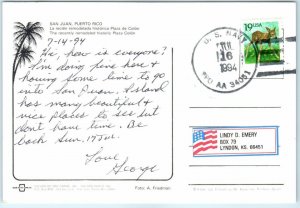 SAN JUAN, PUERTO RICO
La recién remodelada histórica Plaza de Colón
The recently remodeled historic Plaza Colón
7-14-94
Hi how is everyone?
I'm doing fine here &
having some time to go
into San Juan. Island
has many beautiful &
nice places to see but
don't have time. Be
back Sun. 17 Jul.
Love
George
Foto: A. Friedman
U.S. NAVY
JUL
16
1994
AA 34051
19 USA
LINDY D. EMERY
BOX 79
LYNDON, KS. 66451